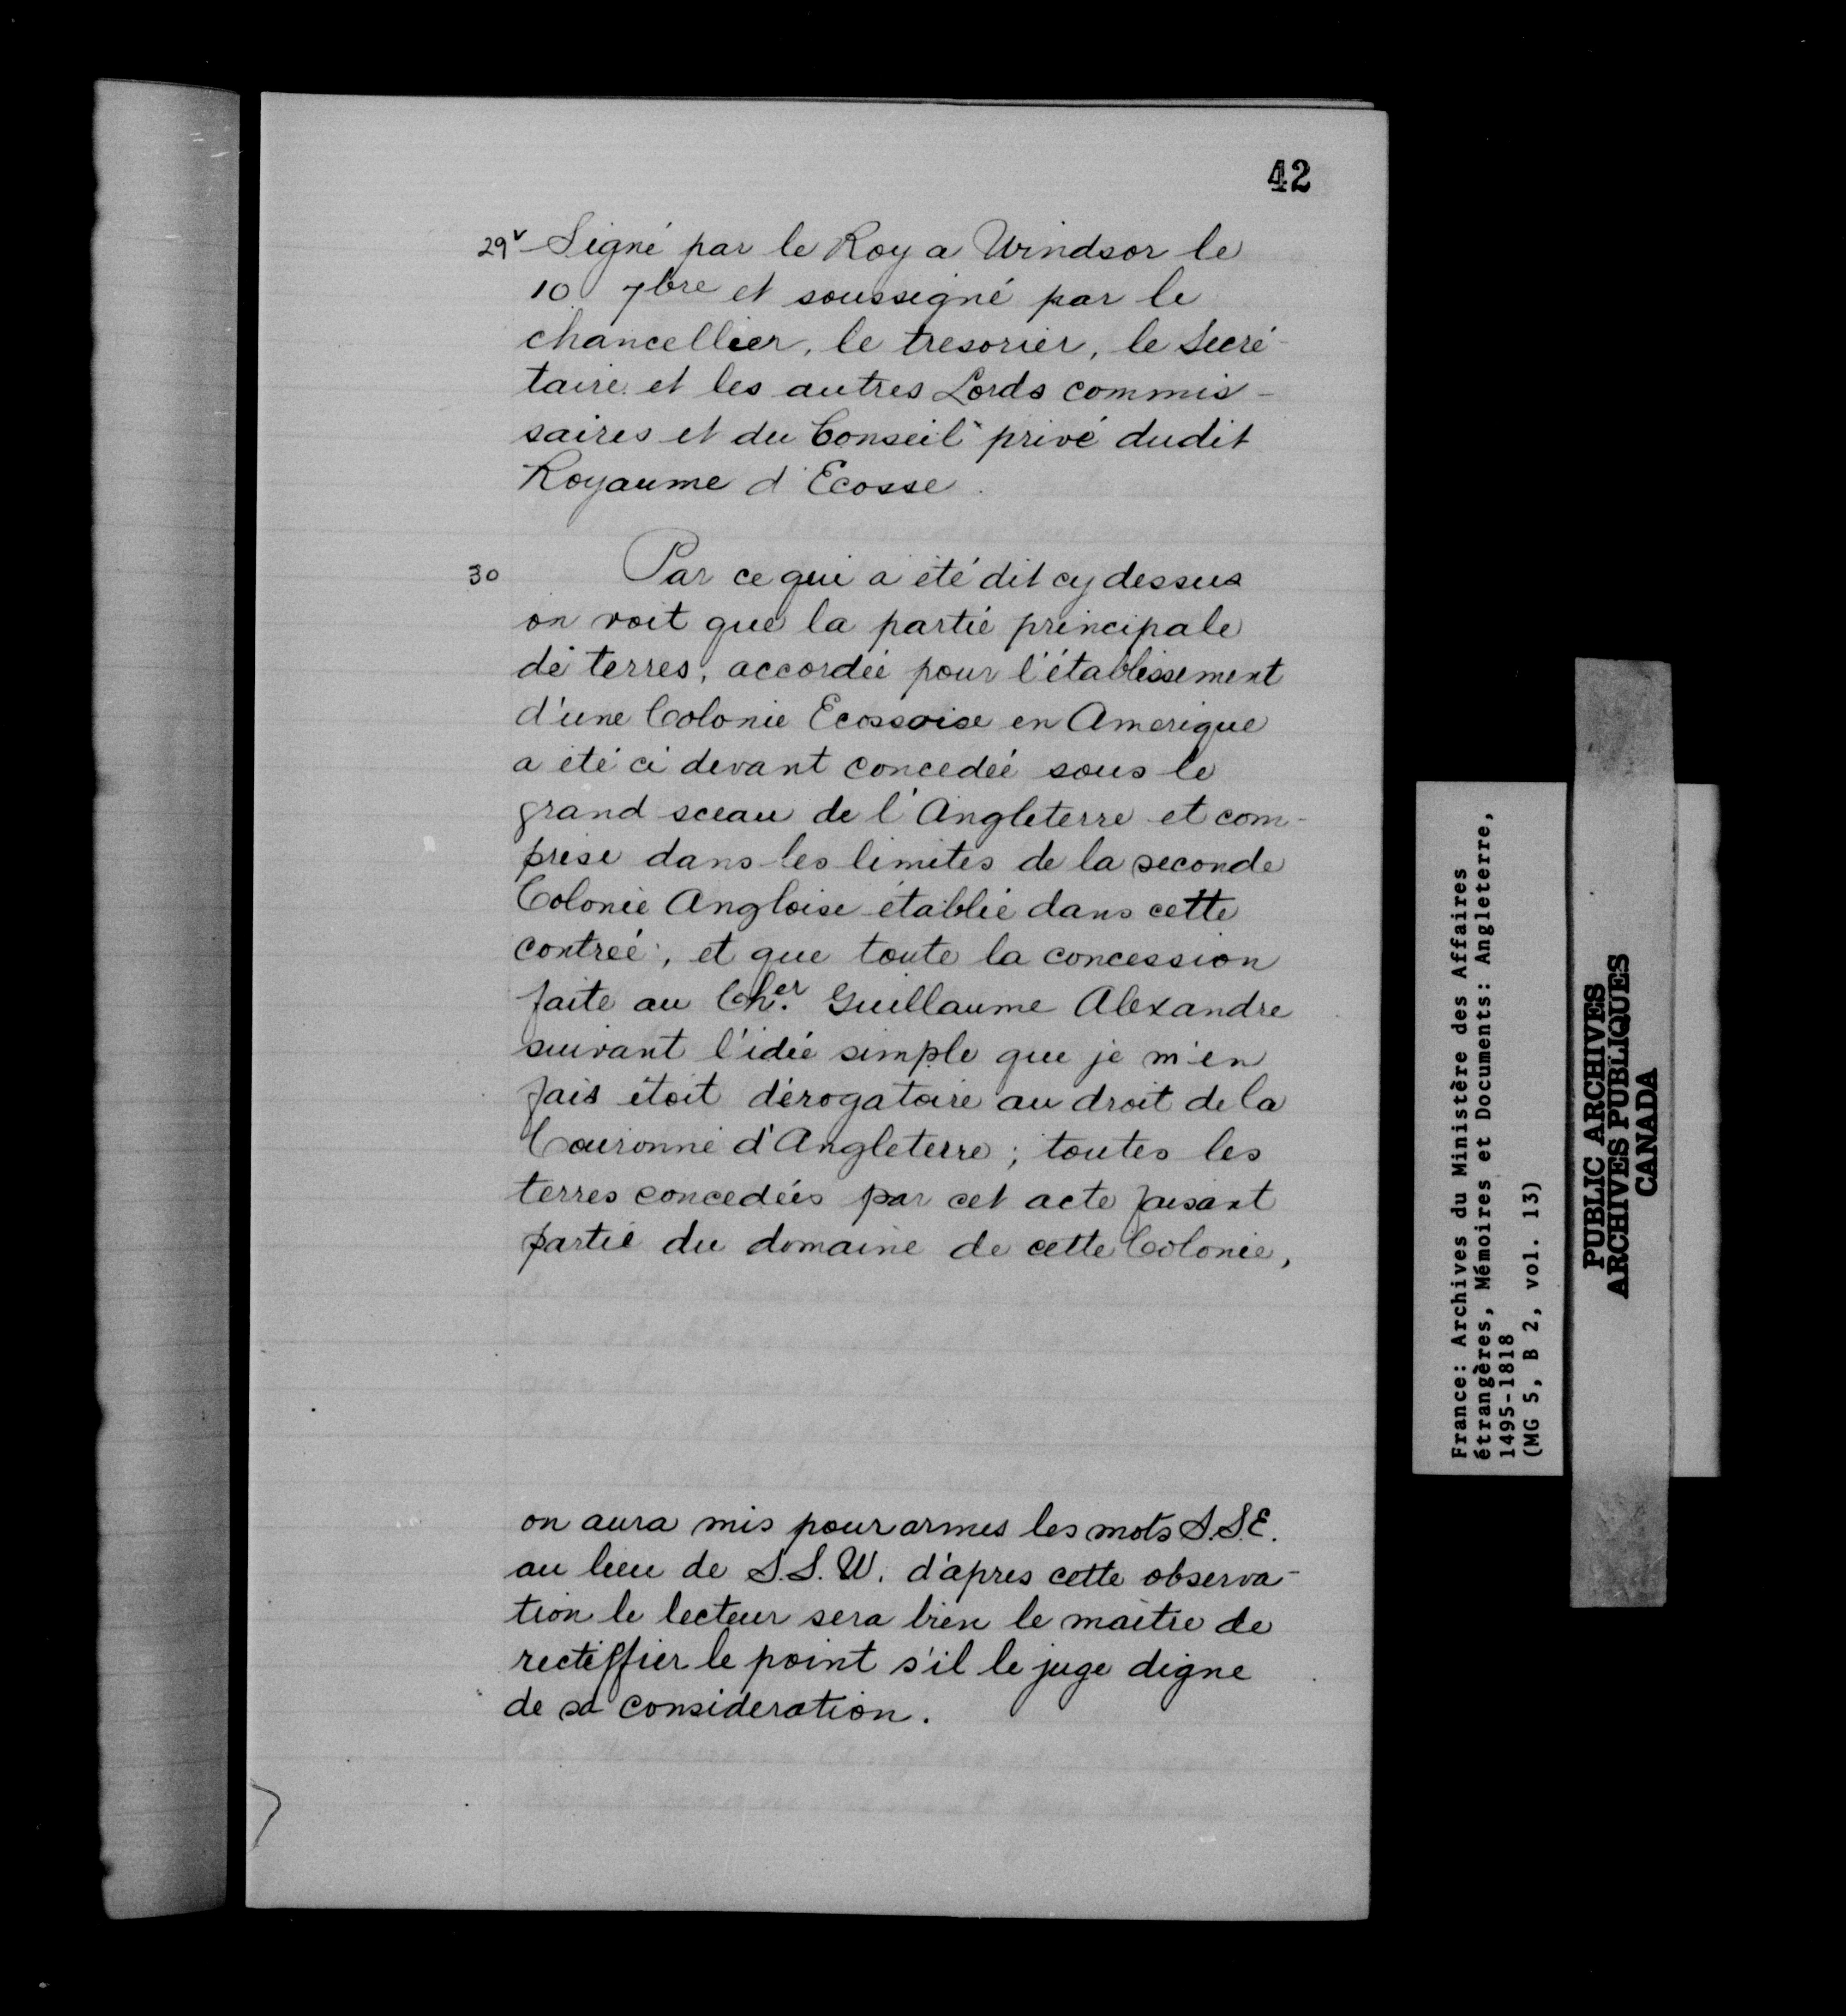 42
29v Signé par le Roy a Windsor le
10 7bre et soussigné par le
chancellier, le tresorier, le Secré-
taire et les autres Lords commis-
saires et du Conseil privé dudit
Royaume d'Ecosse.
30 Par ce qui a été dit cy dessus
on voit que la partie principale
de terres, accordée pour l'établissement
d'une Colonie Ecossoise en Amerique
a été ci devant concedée sous le
grand sceau de l'Angleterre et com-
prise dans les limites de la seconde
Colonie Angloise établie dans cette
contrée, et que toute la concession
faite au Cher. Guillaume Alexandre
suivant l'idée simple que je m'en
fais étoit dérogatoire au droit de la
Couronne d'Angleterre; toutes les
terres concedées par cet acte faisant
partie du domaine de cette Colonie,
on aura mis pour armes les mots S.S.E.
au lieu de S.S.W. d'après cette observa-
tion le lecteur sera bien le maitre de
rectiffier le point s'il le juge digne
de sa consideration.
France: Archives du Ministère des Affaires
étrangères, Mémoires et Documents: Angleterre,
1495-1818
(MG 5, B 2, vol. 13)
PUBLIC ARCHIVES
ARCHIVES PUBLIQUES
CANADA